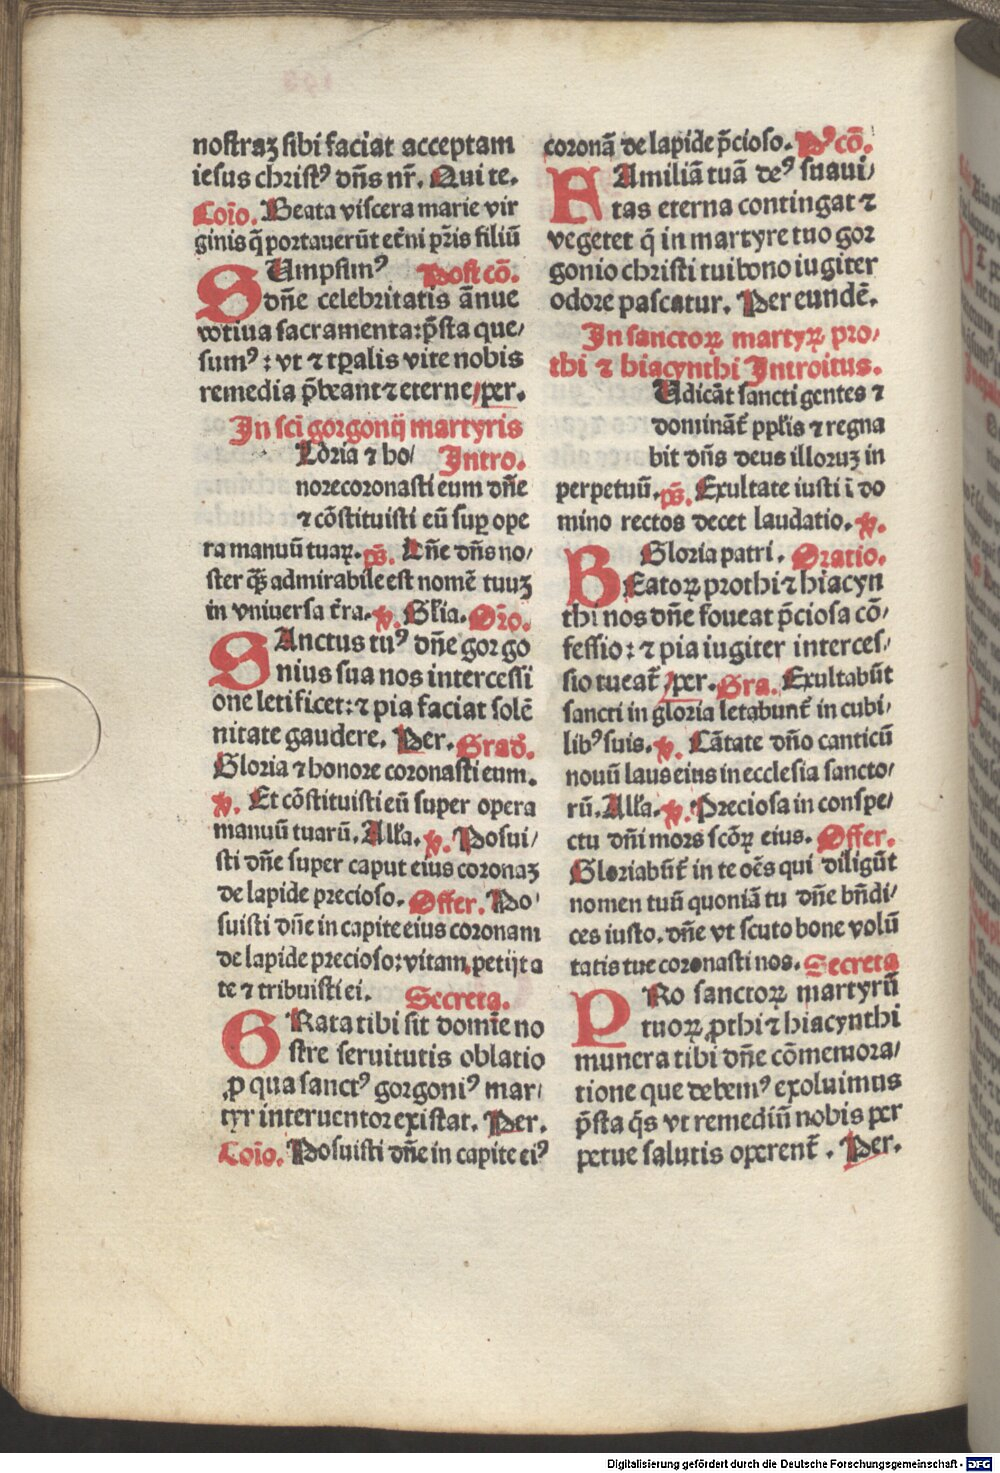 nostraꝫ sibi faciat acceptam
iesus christꝰ dñs nr̄. Qui te.
Coīo. Beata viscera marie vir
ginis q̄ portauerūt et̄ni pr̄is filiū
SUmpsimꝰ Post cō.
dn̄e celebritatis ānue
votiua sacramenta: p̄sta que/
sumꝰ: vt ⁊ tp̄alis vite nobis
remedia p̄beant ⁊ eterne / per.
In sc̄i gorgonij martyris
Loria ⁊ ho/ Intro.
nore coronasti eum dn̄e
⁊ cōstituisti eū suꝑ ope
ra manuū tuaꝝ. ps̄. Dn̄e dn̄s no/
ster q̄ꝫ admirabile est nomē tuuꝫ
in vniuersa t̄ra. ℣. Gl̄ia. Or̄o.
SAnctus tuꝰ dn̄e gorgo
nius sua nos intercessi
one letificet: ⁊ pia faciat solē
nitate gaudere. Per. Grad̄.
Gloria ⁊ honore coronasti eum.
℣. Et cōstituisti eū super opera
manuū tuarū. Alĺa. ℣. Posui/
sti dn̄e super caput eius coronaꝫ
de lapide precioso. Offer. Po/
suisti dn̄e in capite eius coronam
de lapide precioso: vitam petijt a
te ⁊ tribuisti ei. Secreta.
GRata tibi sit domīe no
stre seruitutis oblatio
ꝓ qua sanctꝰ gorgoniꝰ mar/
tyr interuentor existat. Per.
Coīo. Posuisti dn̄e in capite eiꝰ
coronā de lapide p̄cioso. Pꝰ cō.
FAmiliā tuā deꝰ suaui/
tas eterna contingat ⁊
vegetet q̄ in martyre tuo gor
gonio christi tui bono iugiter
odore pascatur. Per eundē.
In sanctoꝝ martyꝝ pro/
thi ⁊ hiacynthi Introitus.
Udicāt sancti gentes ⁊
domināt̄ ppl̄is ⁊ regna
bit dn̄s deus illoruꝫ in
perpetuū. ps̄. Exultate iusti ī do
mino rectos decet laudatio. ℣.
Gloria patri. Oratio.
BEatoꝝ prothi ⁊ hiacyn
thi nos dn̄e foueat p̄ciosa cō/
fessio: ⁊ pia iugiter interces/
sio tueat̄ / per. Gra. Exultabūt
sancti in gloria letabunt̄ in cubi/
libꝰ suis. ℣. Cātate dn̄o canticū
nouū laus eius in ecclesia sancto/
rū. Alĺa. ℣. Preciosa in conspe/
ctu dn̄i mors scōꝝ eius. Offer.
Gloriabūt̄ in te oēs qui diligūt
nomen tuū quoniā tu dn̄e bn̄di/
ces iusto. dn̄e vt scuto bone volū
tatis tue coronasti nos. Secreta
PRo sanctoꝝ martyrū
tuoꝝ ꝓthi ⁊ hiacynthi
munera tibi dn̄e cōmemora/
tione que debemꝰ exoluimus
p̄sta q̄s vt remediū nobis per
petue salutis operent̄. Per.
Digitalisierung gefördert durch die Deutsche Forschungsgemeinschaft - DFG